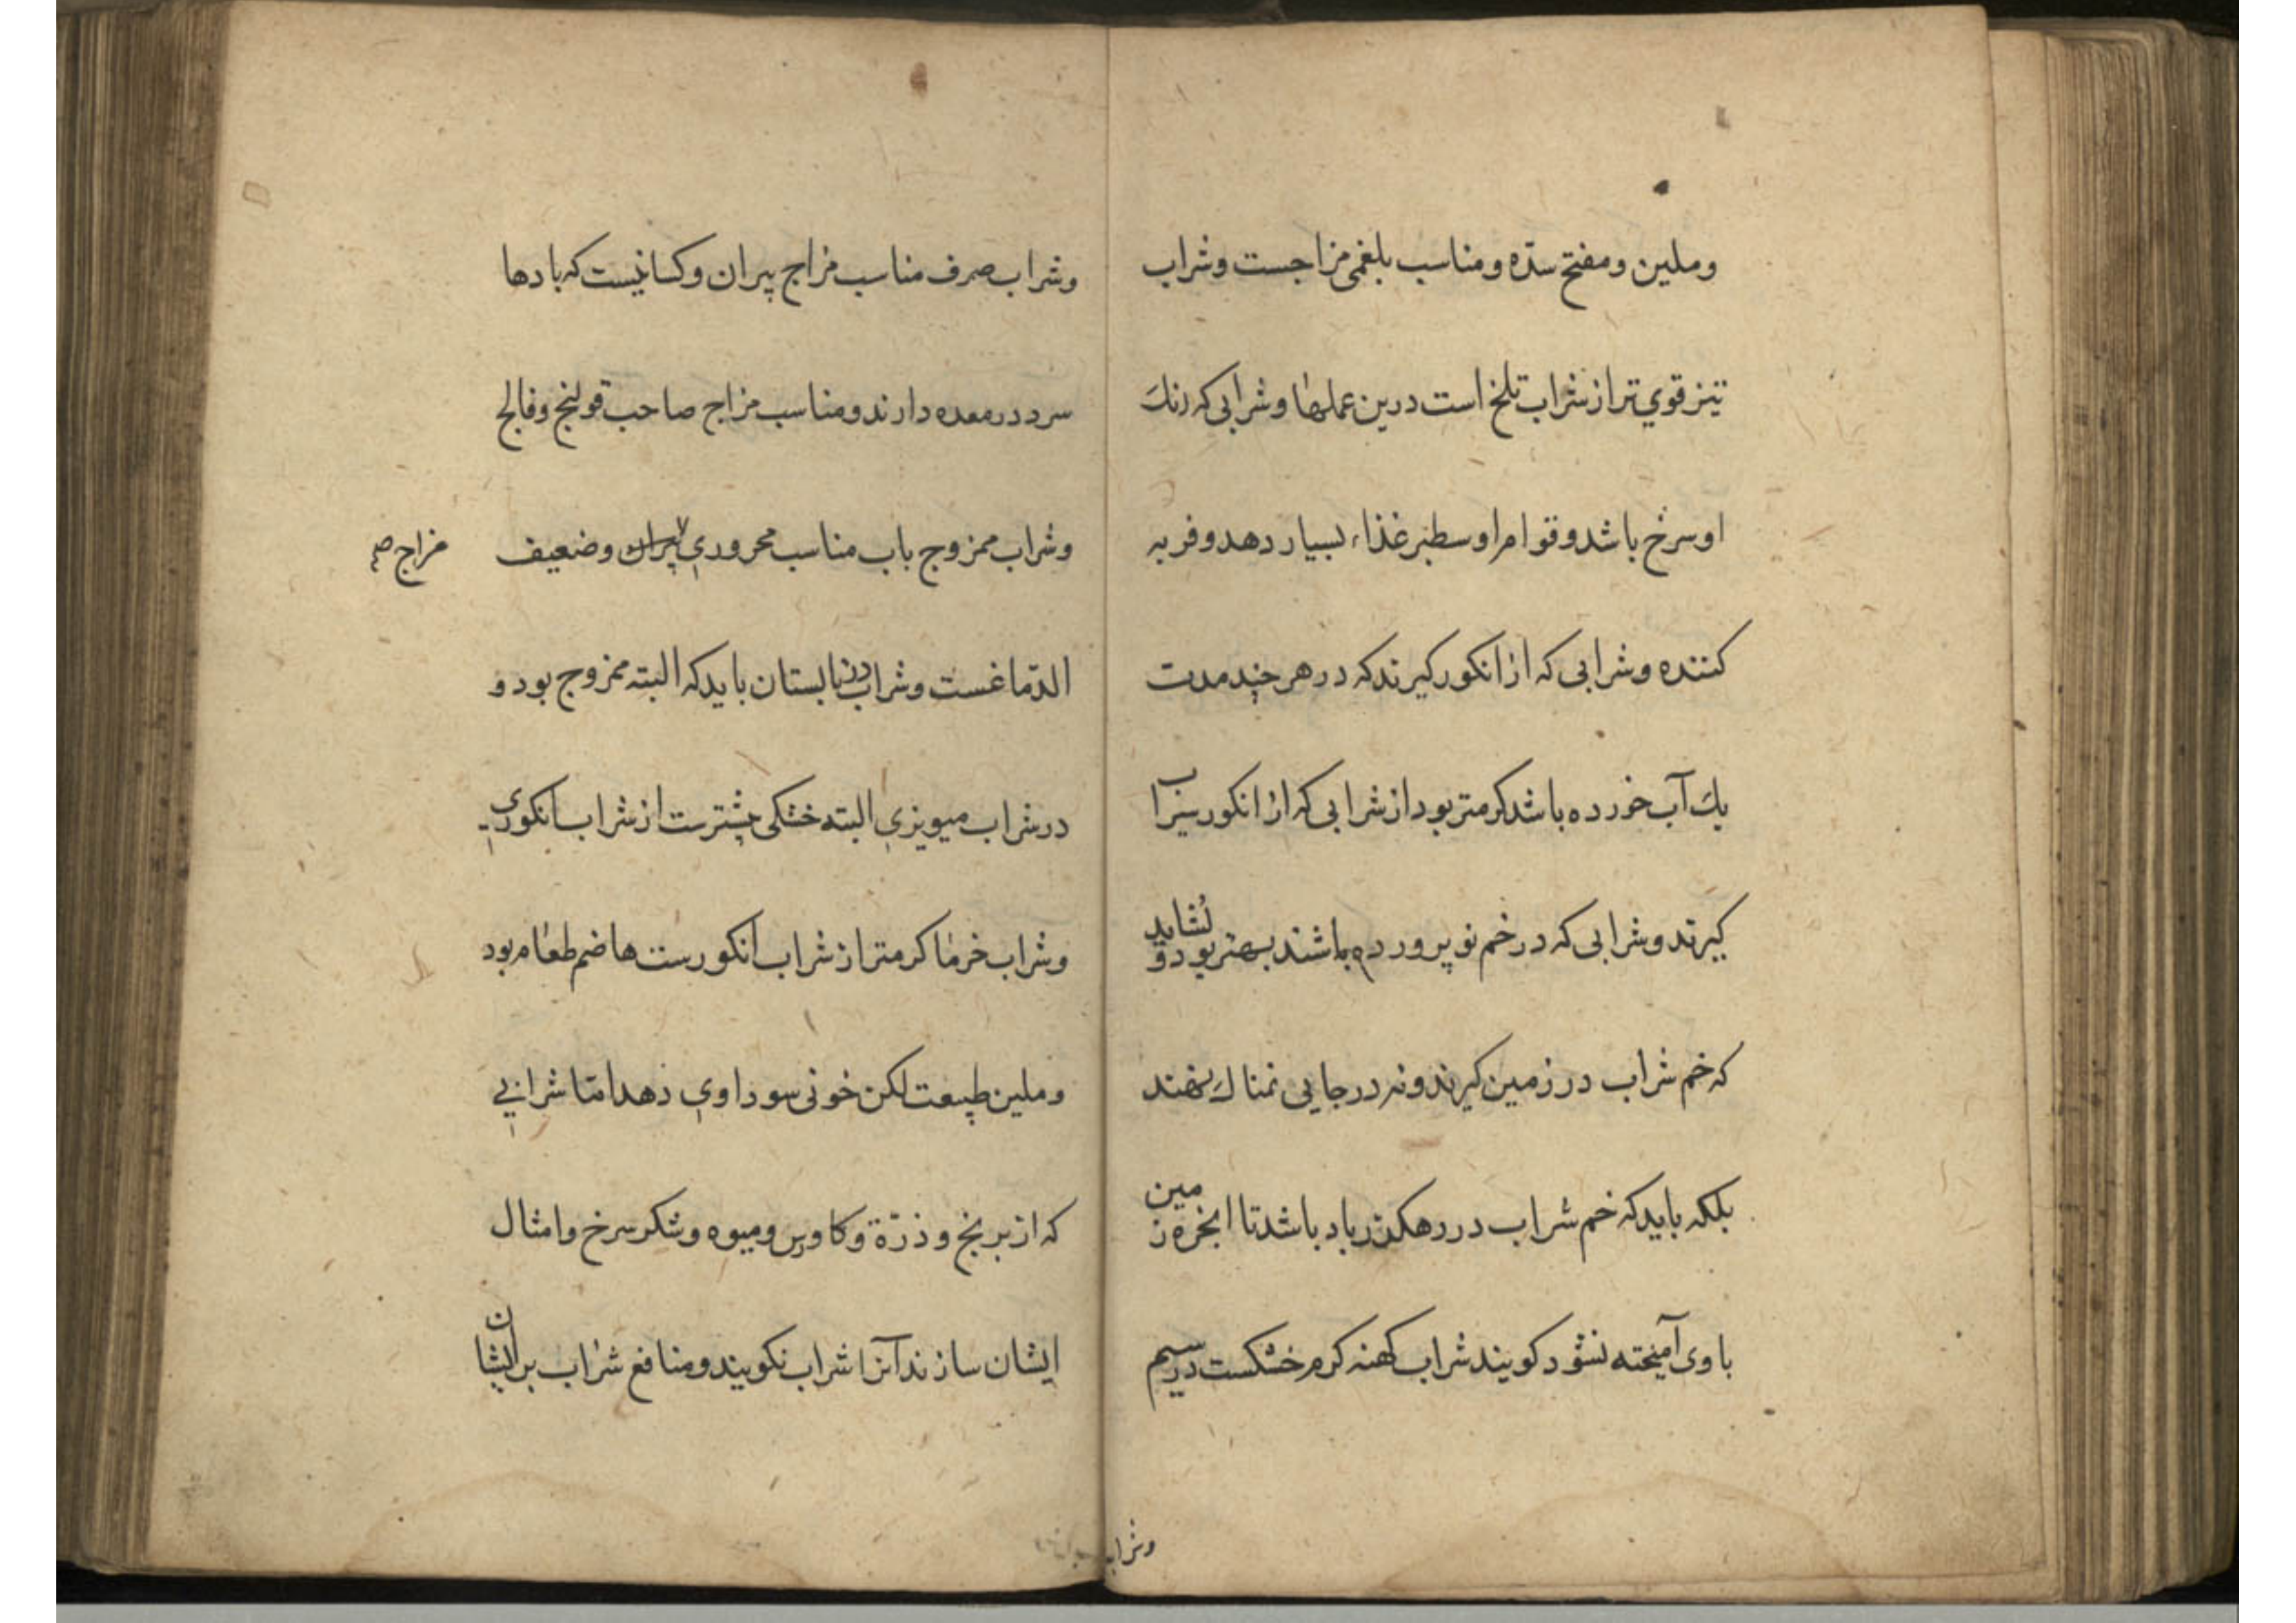 وملین ومفتح سدّه ومناسب بلغمی مزاجست وشراب
تیز قوي تر از شراب تلخ است درین عملها وشرابی که رنك
او سرخ باشد وقوام او سطبر غذاء بسیار دهد وفربه
کننده وشرابی که از انکور کیرند که در هر چند مدت
یك آب خورده باشد کرمتر بود از شرابی که از انکور سیراب
کیرند وشرابی که در خم نو پرورده باشند بهتر بود و نشاید
که خم شراب در زمین کیرند ونه در جایی نمناك نهند
بلکه باید که خم شراب در رهکذر باد باشد تا ابخره زمین
با وی آمیخته نشود کویند شراب کهنه کرم خشکست در سیم
وشراب
وشراب صرف مناسب مزاج پیران وکسانیست که بادها
سرد در معده دارند ومناسب مزاج صاحب قولنج وفالج
وشراب ممزوج باب مناسب محروري پیران وضعیف
مزاج صح
الدّماغست وشراب در تابستان باید که البته ممزوج بود و
در شراب میویزي البته خشکی بیشترست از شراب انکوری
وشراب خرما کرمتر از شراب انکورست هاضم طعام بود
وملین طبیعت لکن خونی سوداوي دهد امّا شرابي
که از برنج و ذرّة وکاورس ومیوه وشکر سرخ وامثال
ایشان سازند آنرا شراب نکویند ومنافع شراب بر ایشان